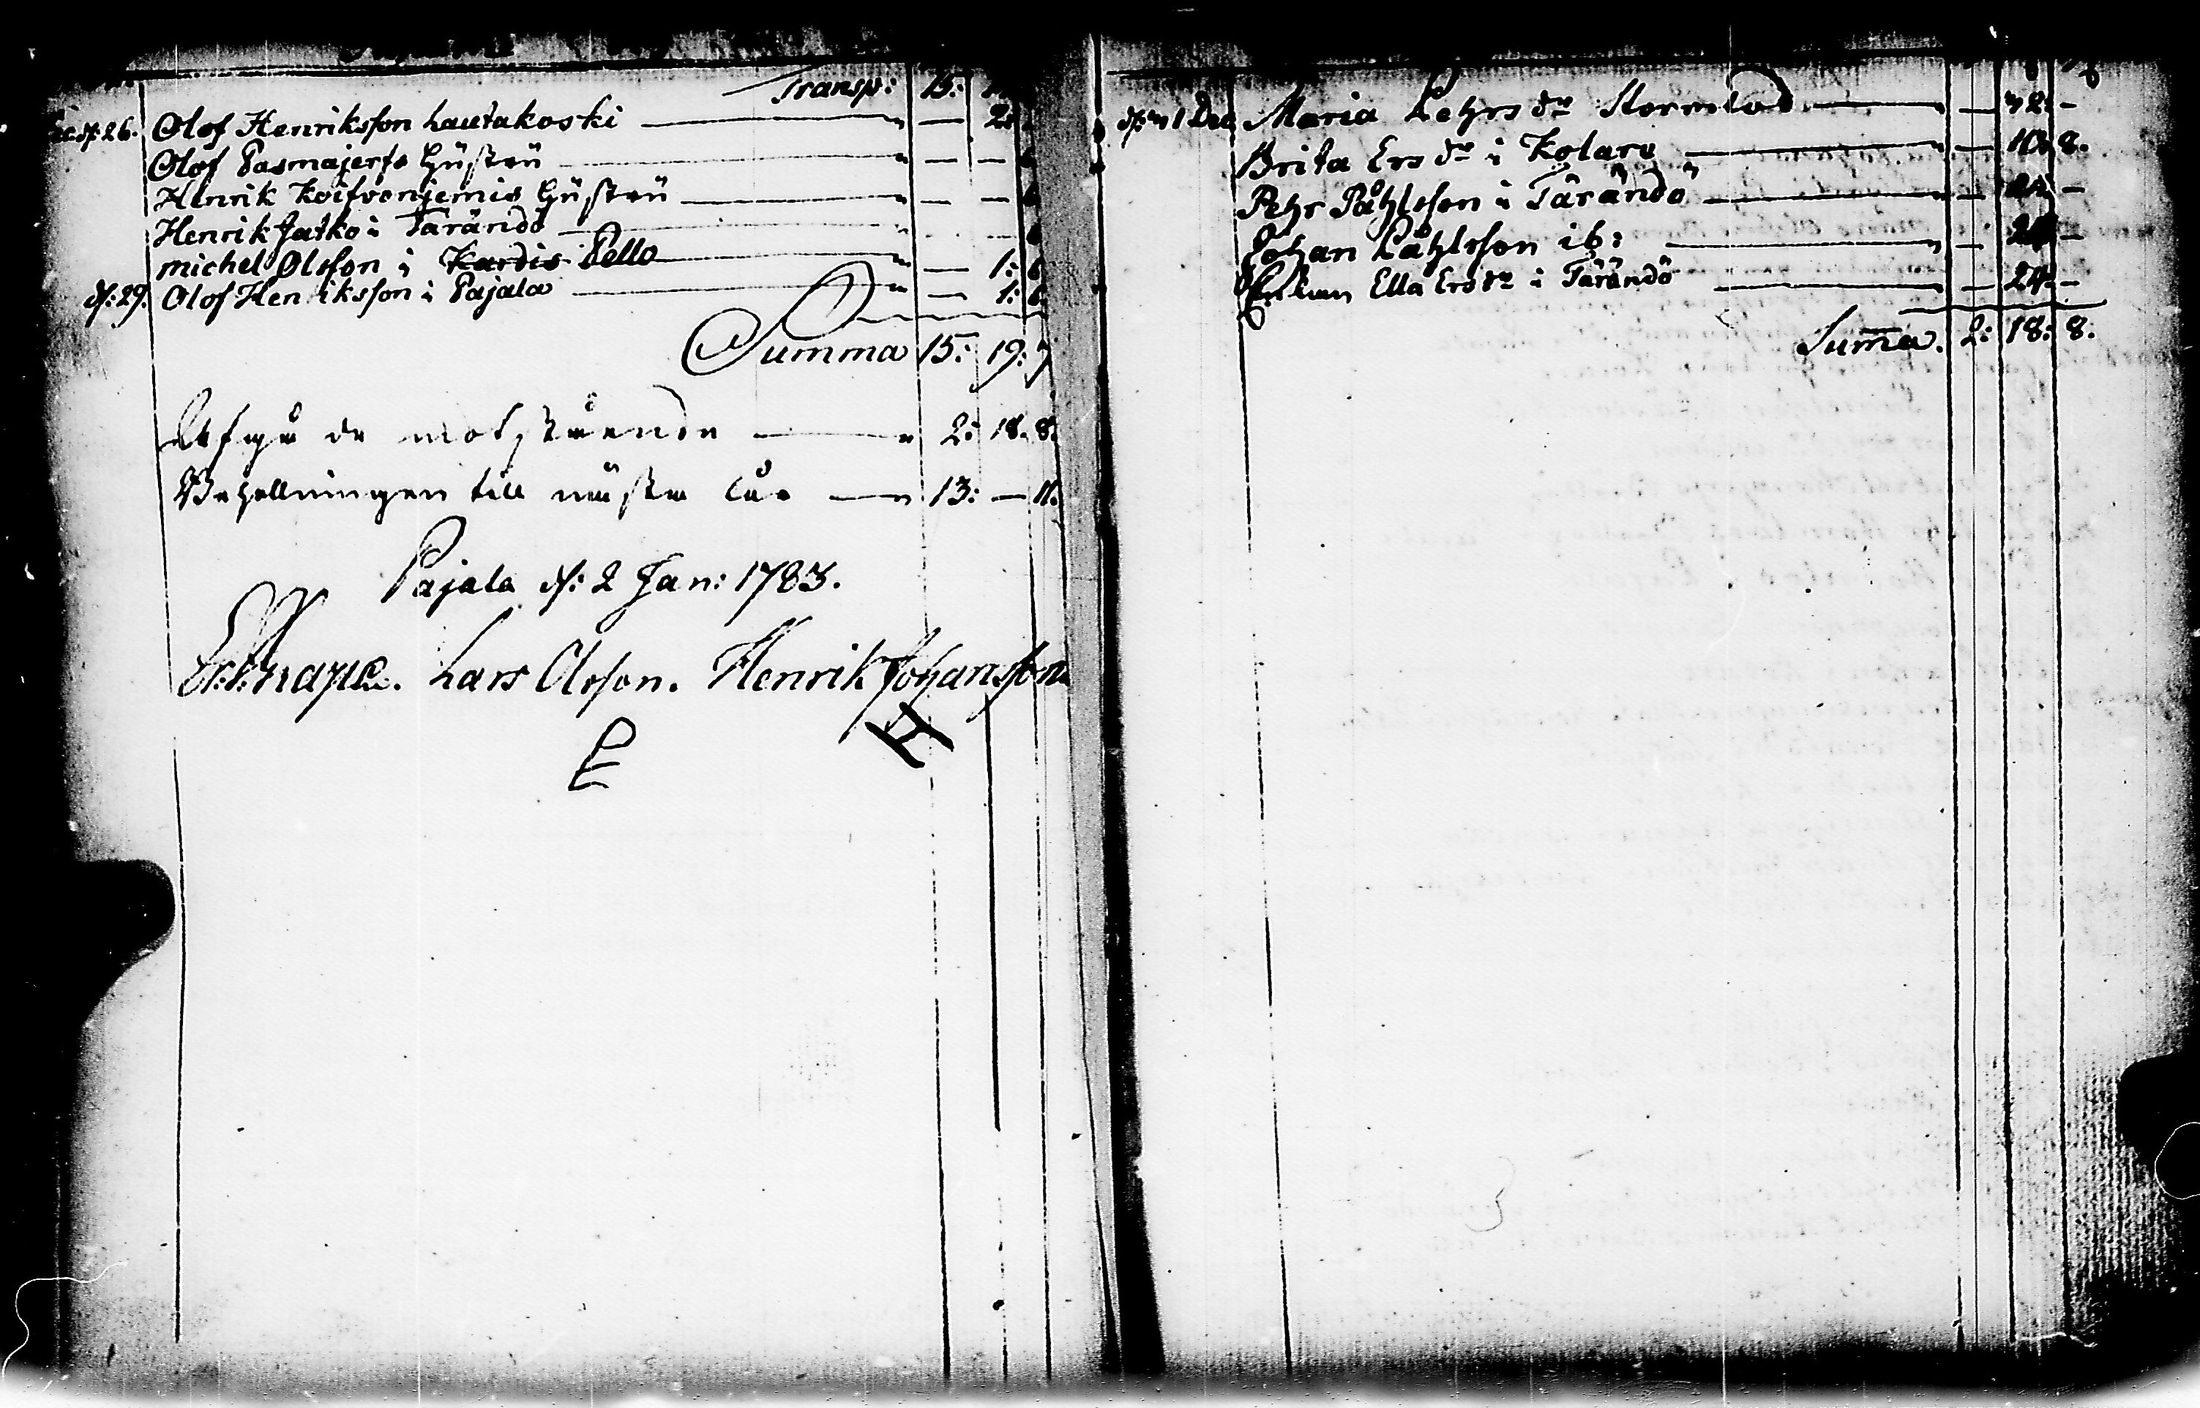 Transp: 15:
d: 26. Olof Henriksson Lautakoski — — 2:
Olof Pasmajerfs Hustru — — —
Henrik Koifvonjemis Hustru — — —
Henrik Jatko i Tarändö
michel Olsson i Kardis Pello — — 1: 6
d: 29. Olof Henriksson i Pajala — — 1: 6
Summa 15: 19: 7
Afgå de motstående — 2: 18. 8.
Behållningen till nästa åhr — 13: — 11.
Pajala d: 2 Jan: 1783.
Lars Olsson. Henrik Johansson
H
d: 1 Dec Maria Pehrs dr — — 42: —
Brita Ers dr i Kolare — — 10: 8.
Pehr Påhlsson i Tärändö — — 24: —
Johan Påhlsson ib: — — 24 —
Enkan Ella Ers dr i Tärändö — — 24: —
Summa. 2: 18: 8.